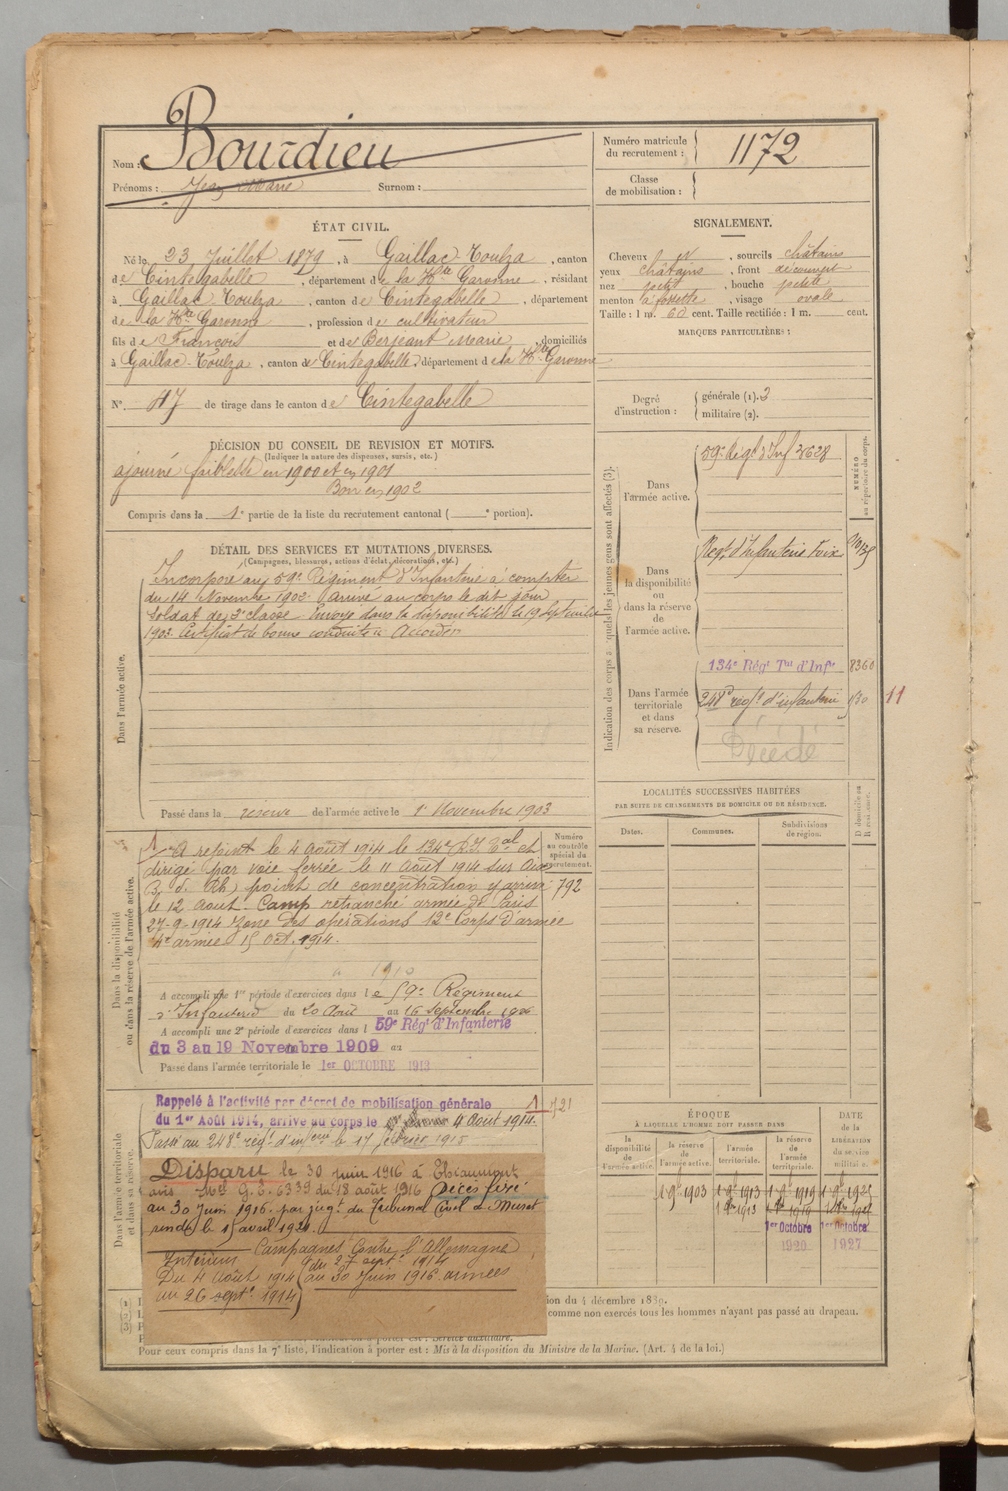 Nom : Bourdieu
Prénoms : Jean Marie Surnom :
Numéro matricule
du recrutement : 1172
Classe
de mobilisation :
ÉTAT CIVIL.
Né le 23 Juillet 1879, à Gaillac-Toulza, canton
de Cintegabelle, département de la Hte Garonne, résidant
à Gaillac-Toulza, canton de Cintegabelle, département
de la Hte Garonne, profession de cultivateur
fils de François et de Berjeant Marie, domiciliés
à Gaillac-Toulza, canton de Cintegabelle, département de la Hte Garonne
N° 47 de tirage dans le canton de Cintegabelle
SIGNALEMENT.
Cheveux N, sourcils châtains
yeux châtains, front découvert
nez petit, bouche petite
menton à fossette, visage ovale
Taille : 1 m. 60 cent. Taille rectifiée : 1 m. cent.
MARQUES PARTICULIÈRES :
Degré
d'instruction :
générale (1). 3
militaire (2).
DÉCISION DU CONSEIL DE REVISION ET MOTIFS.
(Indiquer la nature des dispenses, sursis, etc.)
ajourné faiblesse en 1900 et en 1901
Bon en 1902
Compris dans la 1e partie de la liste du recrutement cantonal ( e portion).
DÉTAIL DES SERVICES ET MUTATIONS DIVERSES.
(Campagnes, blessures, actions d'éclat, décorations, etc.)
Dans l'armée active.
Incorporé au 59e Régiment d'Infanterie à compter
du 14 Novembre 1902. Arrivé au corps le dit jour
soldat de 2e classe. Envoyé dans la disponibilité le 19 Septembre
1903 Certificat de bonne conduite Accordé
Passé dans la réserve de l'armée active le 1er Novembre 1903
Indication des corps auxquels les jeunes gens sont affectés (3).
NUMÉRO
au répertoire du corps.
Dans
l'armée active.
59e Régt d'Inf 3628
Dans
la disponibilité
ou
dans la réserve
de
l'armée active.
Regt d'Infanterie Foix
Dans l'armée
territoriale
et dans
sa réserve.
134e Régt Tal d'Infie 8360
248e régt d'infanterie
11
Décédé
LOCALITÉS SUCCESSIVES HABITÉES
PAR SUITE DE CHANGEMENTS DE DOMICILE OU DE RÉSIDENCE.
Dates. Communes. Subdivisions
de région.
D domicile ou
R résidence.
Dans la disponibilité
ou dans la réserve de l'armée active.
Numéro
au contrôle
spécial du
recrutement.
792
A rejoint le 4 Août 1914 le 134e R.I. Tal et
dirigé par voie ferrée le 11 Août 1914 sur Aix
B. d. Rh, point de concentration y arrive
le 12 Août. Camp retranché armée de Paris
27-9-1914 Zone des opérations 12e Corps d'armée
4e armée 15 Oct. 1914.
A accompli une 1re période d'exercices dans le 59e Régiment
d'Infanterie du 20 Août au 16 Septembre 1906
A accompli une 2e période d'exercices dans l 59e Régt d'Infanterie
du 3 au 19 Novembre 1909 au
Passé dans l'armée territoriale le 1er OCTOBRE 1913
Dans l'armée territoriale
et dans sa réserve.
Rappelé à l'activité par décret de mobilisation générale
du 1er Août 1914, arrivé au corps le 4 Août 1914.
Passé au 248e régt d'infrie le 17 février 1915
Disparu le 30 Juin 1916 à Thiaumont
avis Mel G.T. 6339 du 18 août 1916 Décès fixé
au 30 Juin 1916 par jugt du Tribunal Civil de Muret
rendu le 15 avril 1921.
Campagnes Contre l'Allemagne
Intérieur
Du 4 Août 1914
au 26 septe 1914
du 27 septe 1914
au 30 Juin 1916 armées
ÉPOQUE
À LAQUELLE L'HOMME DOIT PASSER DANS
DATE
DE LA
LIBÉRATION
du service
militaire.
la
disponibilité
de
l'armée active.
la réserve
de
l'armée active.
l'armée
territoriale.
la réserve
de
l'armée
territoriale.
1 9bre 1903 1 9bre 1913 1 9bre 1919
1er Octobre 1er Octobre
1920 1927
ion du 4 décembre 1889.
comme non exercés tous les hommes n'ayant pas passé au drapeau.
Pour ceux compris dans la 7e liste, l'indication à porter est : Mis à la disposition du Ministre de la Marine. (Art. 4 de la loi.)